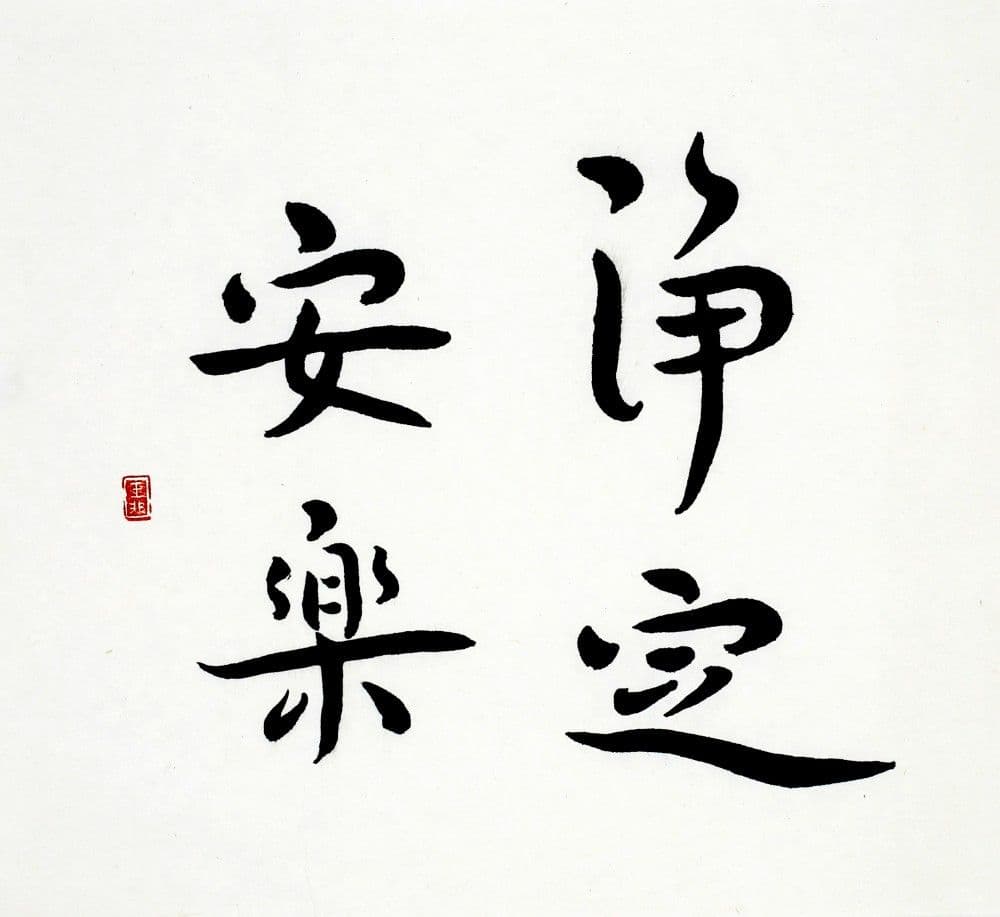 淨定
安樂